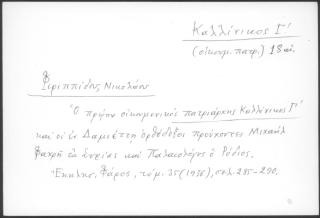 Καλλίνικος Γ'
(οἰκουμ. πατρ.) 18 αἰ.
Φιριππίδης Νικολάου
Ὁ πρώην οἰκουμενικὸς πατριάρχης Καλλίνικος Γ'
καὶ οἱ ἐν Δαμιέττῃ ὀρθόδοξοι προὔχοντες Μιχαὴλ
Φαχρῆ ἐκ Συρίας καὶ Παλαιολόγος ὁ Ρόδιος.
Ἐκκλησ. Φάρος, τόμ. 35 (1936), σελ. 285-290.